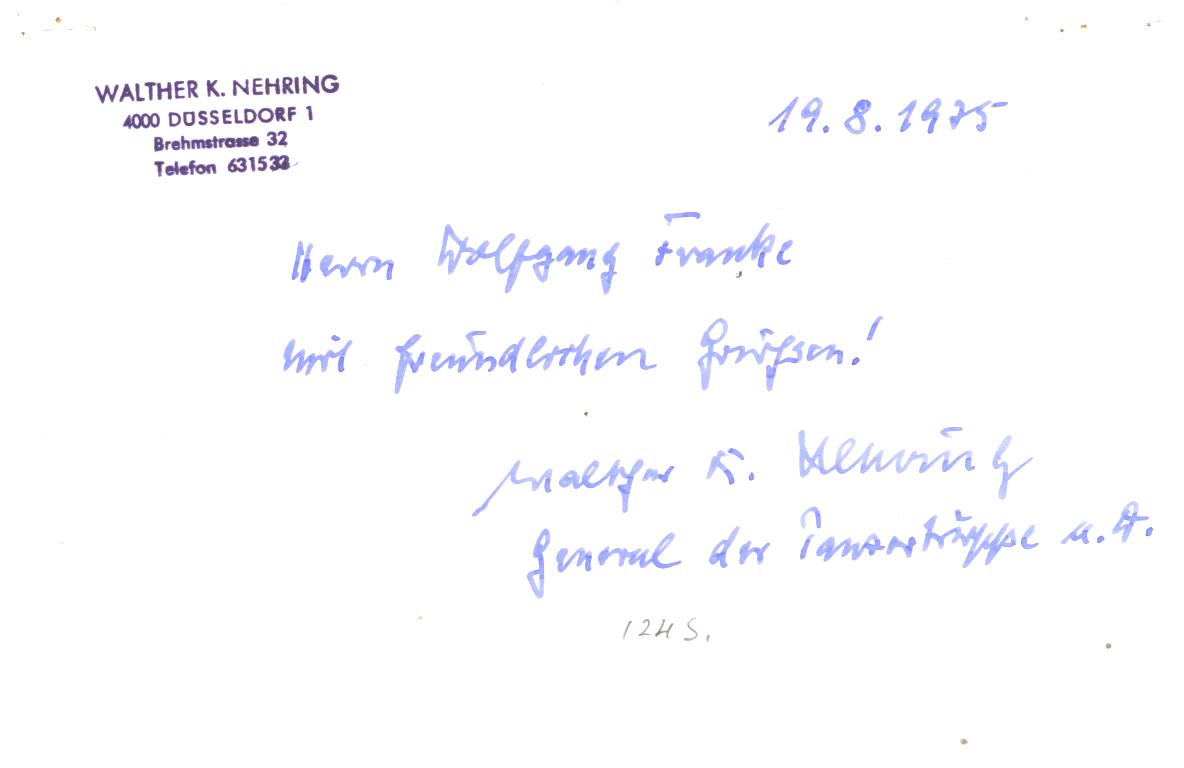 WALTHER K. NEHRING
4000 DÜSSELDORF 1
Brehmstrasse 32
Telefon 631532
19.8.1975
Herrn Wolfgang Franke
mit freundlichen Grüßen!
Walther K. Nehring
General der Panzertruppe a.D.
124 S.